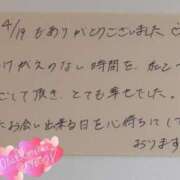 4/19もありがとうございました
かけがえのない時間を、私と
過ごして頂き、とても幸せでした。
またお会い出来る日を心待ちにして
おります